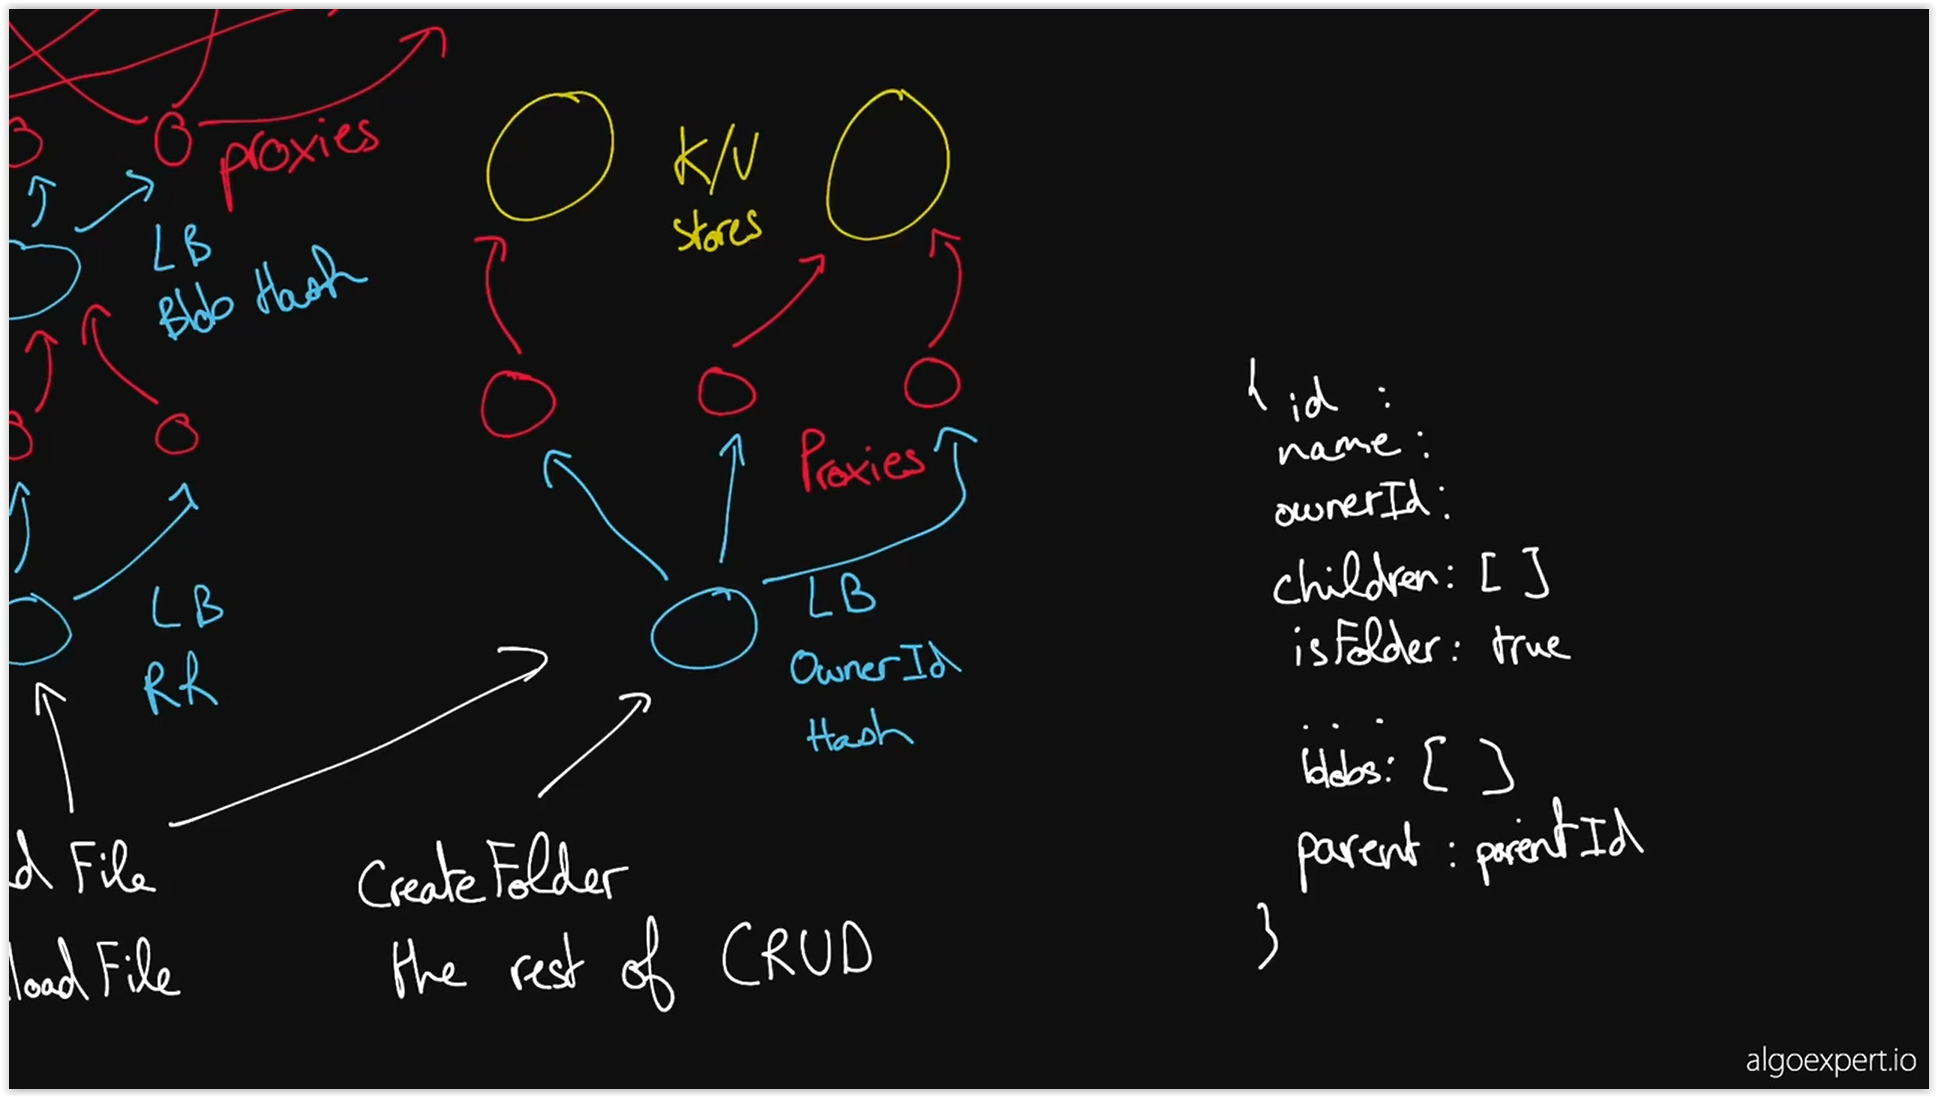 proxies
LB
Blob Hash
K/V
stores
Proxies
LB
RR
LB
OwnerId
Hash
d File
load File
CreateFolder
the rest of CRUD
{ id :
name :
ownerId :
children : [ ]
isFolder : true
...
blobs : [ ]
parent : parentId
}
algoexpert.io